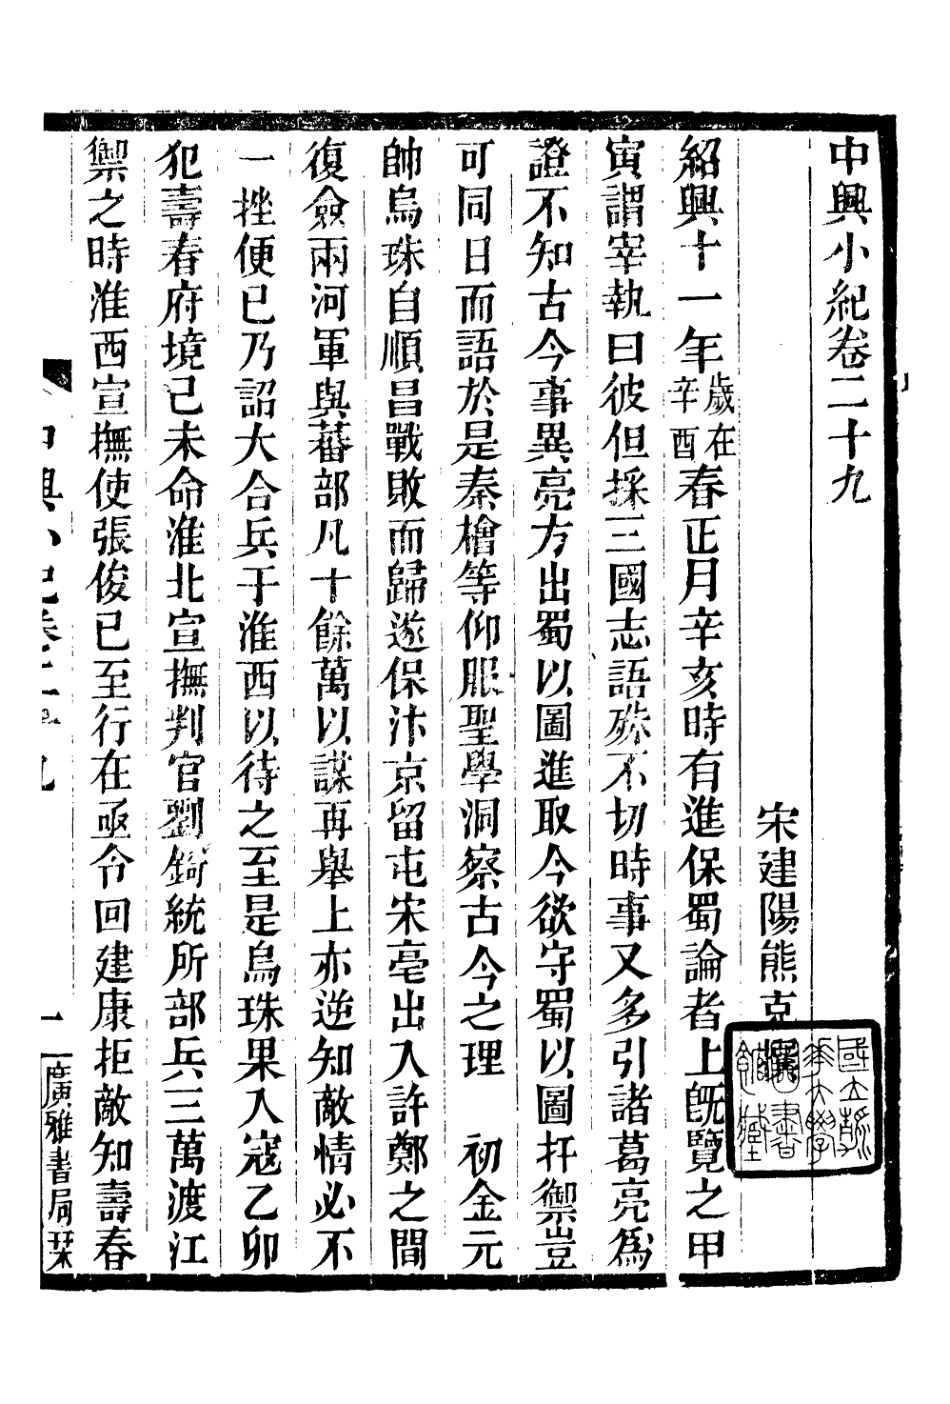 中興小紀卷二十九
宋建陽熊克撰
紹興十一年歲在辛酉春正月辛亥時有進保蜀論者上旣覽之甲
寅謂宰執曰彼但採三國志語殊不切時事又多引諸葛亮爲
證不知古今事異亮方出蜀以圖進取今欲守蜀以圖扞禦豈
可同日而語於是秦檜等仰服聖學洞察古今之理　初金元
帥烏珠自順昌戰敗而歸遂保汴京留屯宋亳出入許鄭之間
復僉兩河軍與蕃部凡十餘萬以謀再舉上亦逆知敵情必不
一挫便已乃詔大合兵于淮西以待之至是烏珠果入寇乙卯
犯壽春府境己未命淮北宣撫判官劉錡統所部兵三萬渡江
禦之時淮西宣撫使張俊已至行在亟令回建康拒敵知壽春
中興小紀卷二十九
一
廣雅書局栞
國立清華大學圖書館藏